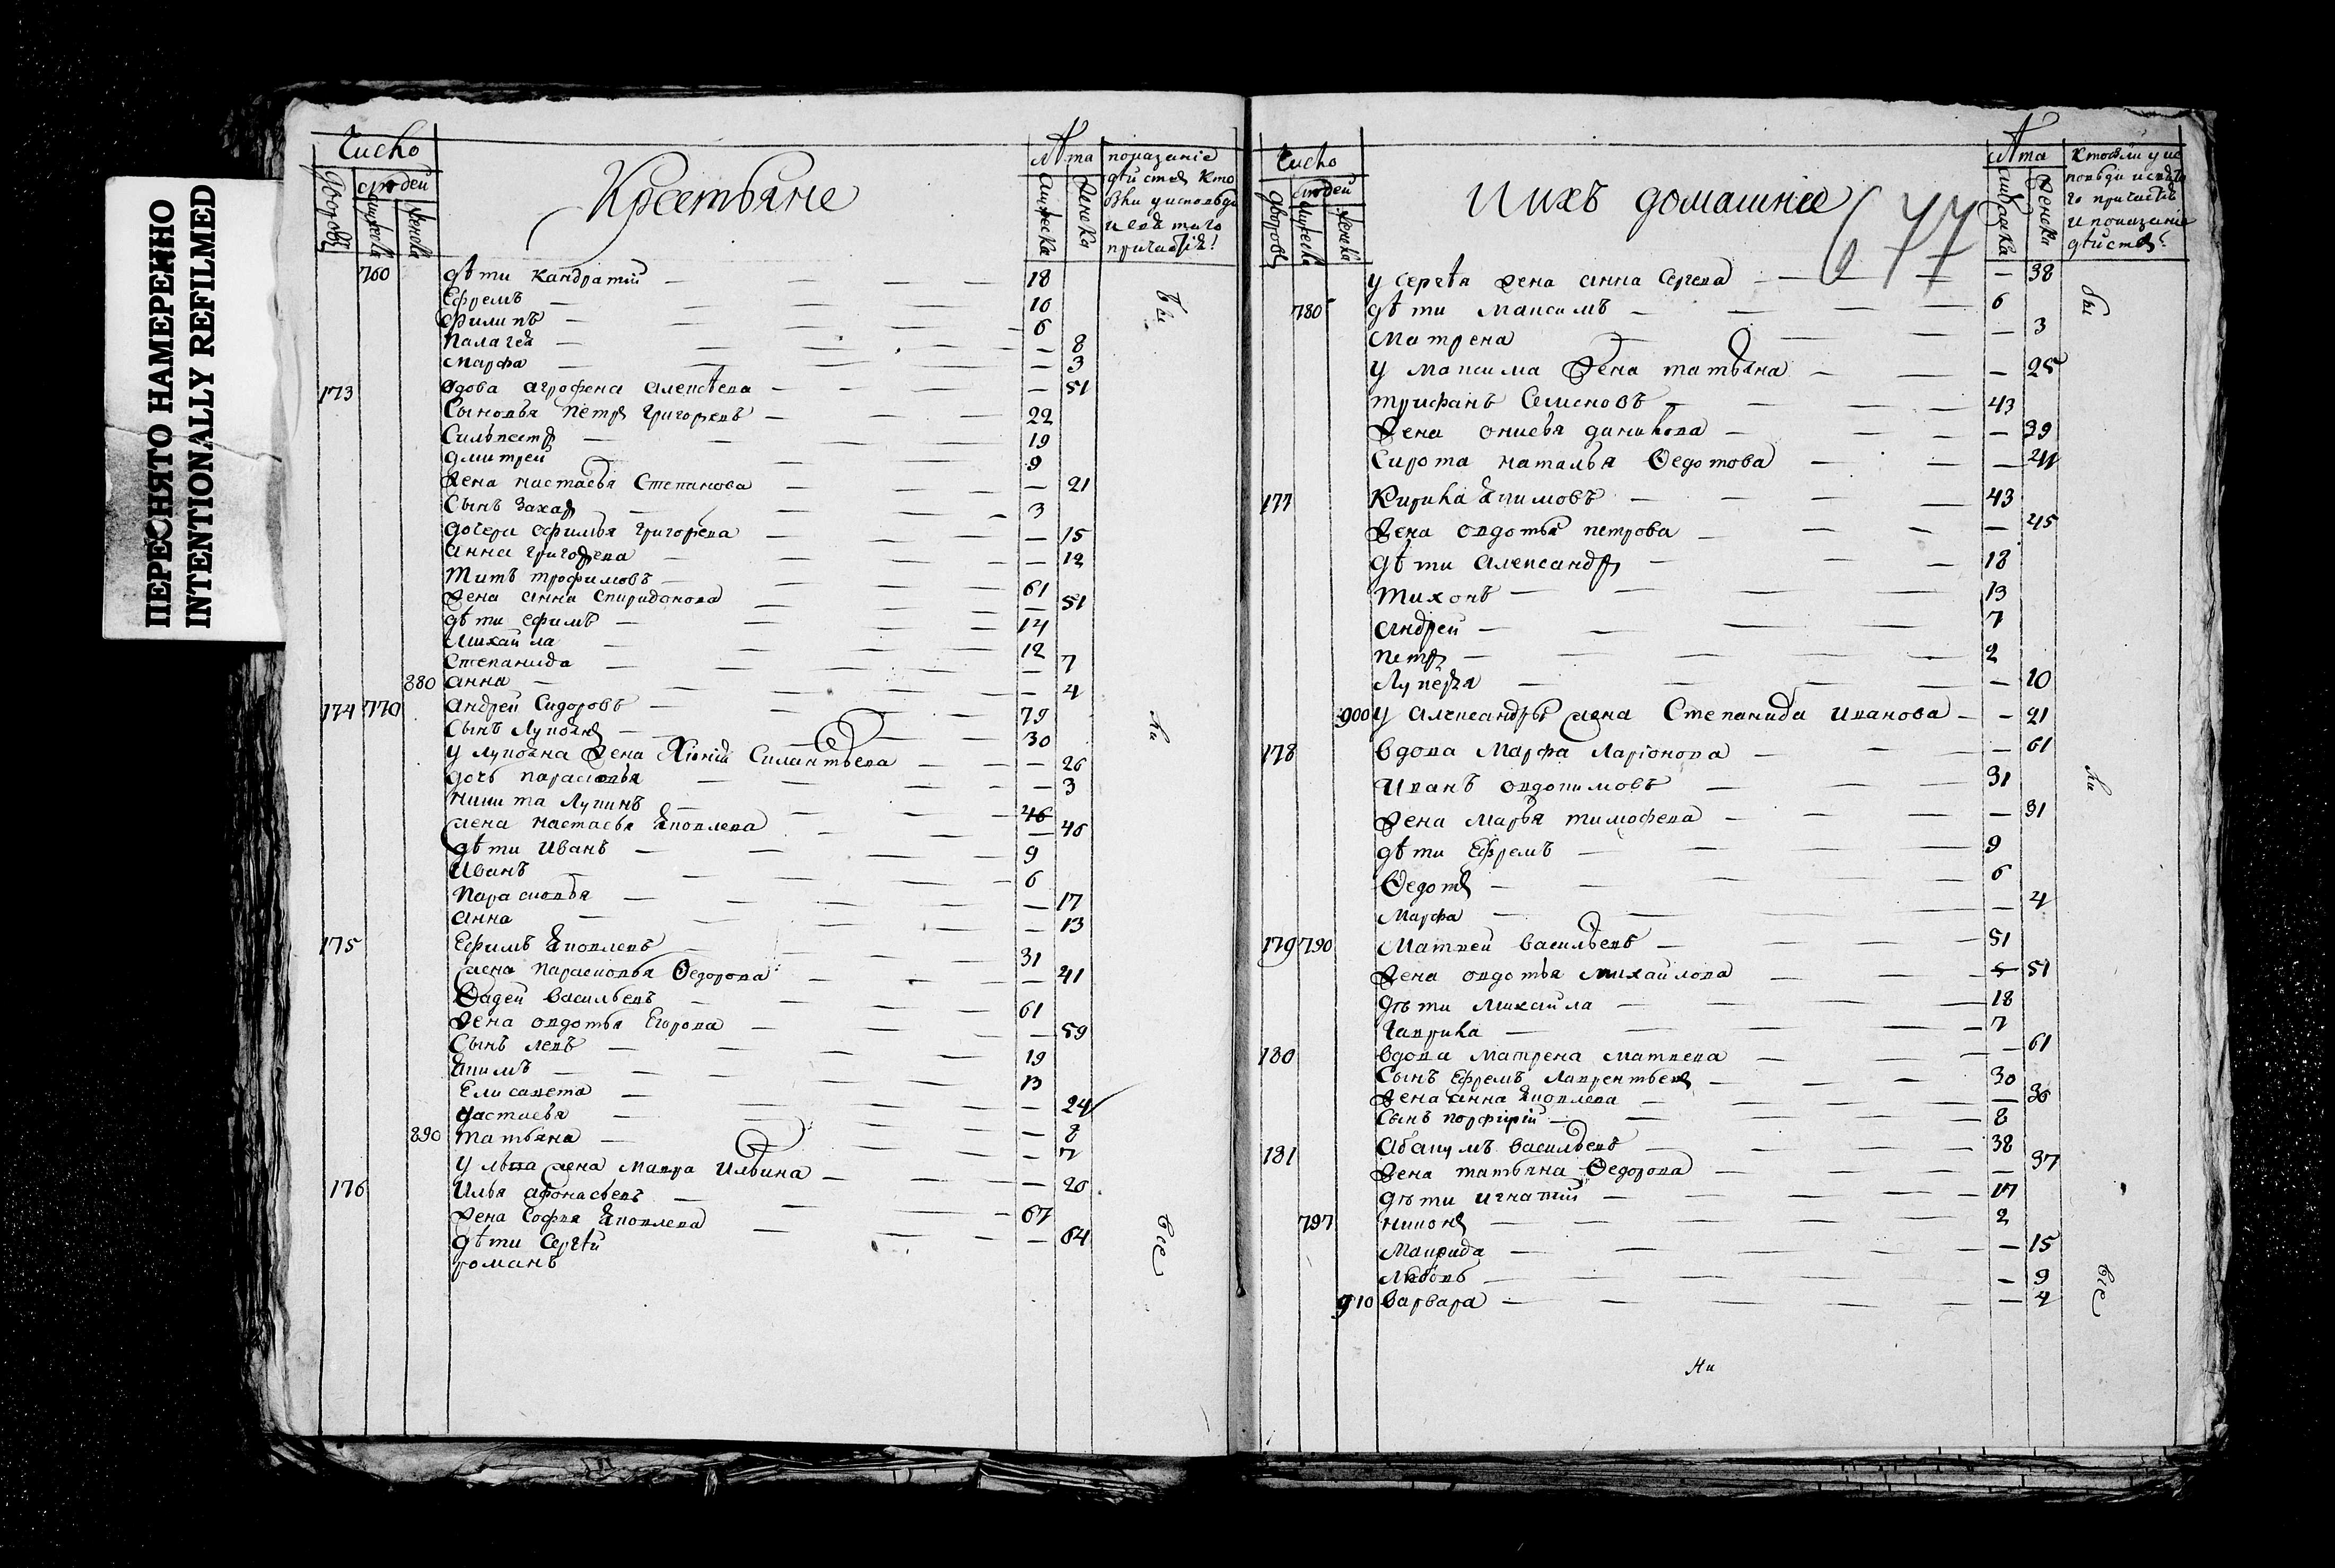 ПЕРЕСНЯТО НАМЕРЕННО
INTENTIONALLY REFILMED
Число
людей
дворовъ
мужеска
женска
Крестьяне
Лѣта
мужеска
женска
показаніе
дѣйства кто
былъ у исповѣди
и свѧтаго
причастія
760 дѣти Кандратій — 18
Ефремъ — 10
Филипъ — 6
Палагея — 8
Марфа — 3
173 вдова Агрофена Алексѣева — 51
Сыновья Петръ Григорьевъ — 22
Сильвестръ — 19
Дмитрей — 9
жена Настасья Степанова — 21
Сынъ Захаръ — 3
дочери Афимья Григорьева — 15
Анна Григорьева — 12
Титъ Трофимовъ — 61
жена Анна Спиридонова — 51
дѣти Ефимъ — 14
Михайла — 12
Степанида — 7
880 Анна — 4
174 770 Андрей Сидоровъ — 79
Сынъ Лупоянъ — 30
у Лупояна жена Хіонія Силантьева — 26
дочь Парасковья — 3
Никита Лупинъ — 46
жена Настасья Яковлева — 46
дѣти Иванъ — 9
Иванъ — 6
Парасковья — 17
Анна — 13
175 Ефимъ Яковлевъ — 31
жена Парасковья Ѳедорова — 41
Ѳадей Васильевъ — 61
жена Овдотья Егорова — 59
Сынъ Левъ — 19
Якимъ — 13
Елисавета — 24
Настасья — 8
890 Татьяна — 7
у Льва жена Мавра Ильина — 20
176 Илья Афонасьевъ — 67
жена Софья Яковлева — 64
дѣти Сергѣй
Романъ
бы
ли
все
Число
людей
дворовъ
мужеска
женска
И ихъ домашніе
677
Лѣта
мужеска
женска
Кто были у ис
повѣди и свѧта
го причастія
и показаніе
дѣйства
у Сергѣя жена Анна Сергева — 38
780 дѣти Максимъ — 6
Матрена — 3
у Максима жена Татьяна — 25
Трифанъ Семеновъ — 43
жена Онисья Данилова — 39
Сирота Наталья Ѳедотова — 24
177 Кирила Якимовъ — 43
жена Овдотья Петрова — 45
дѣти Александръ — 18
Тихонъ — 13
Андрей — 7
Петръ — 2
Лукерья — 10
900 у Александры жена Степанида Иванова — 21
178 вдова Марфа Ларіонова — 61
Иванъ Овдокимовъ — 31
жена Марья Тимофева — 31
дѣти Ефремъ — 9
Ѳедотъ — 6
Марфа — 4
179 790 Матвей Васильевъ — 51
жена Овдотья Михайлова — 51
дѣти Михайла — 18
Гаврила — 7
180 вдова Матрена Матвева — 61
Сынъ Ефремъ Лаврентьевъ — 30
жена Анна Яковлева — 36
Сынъ Порфирій — 8
181 Абакумъ Васильевъ — 38
жена Татьяна Ѳедорова — 37
дѣти Игнатій — 17
797 Никонъ — 2
Маврида — 15
Любовь — 9
910 Варвара — 4
бы
ли
все
Ни